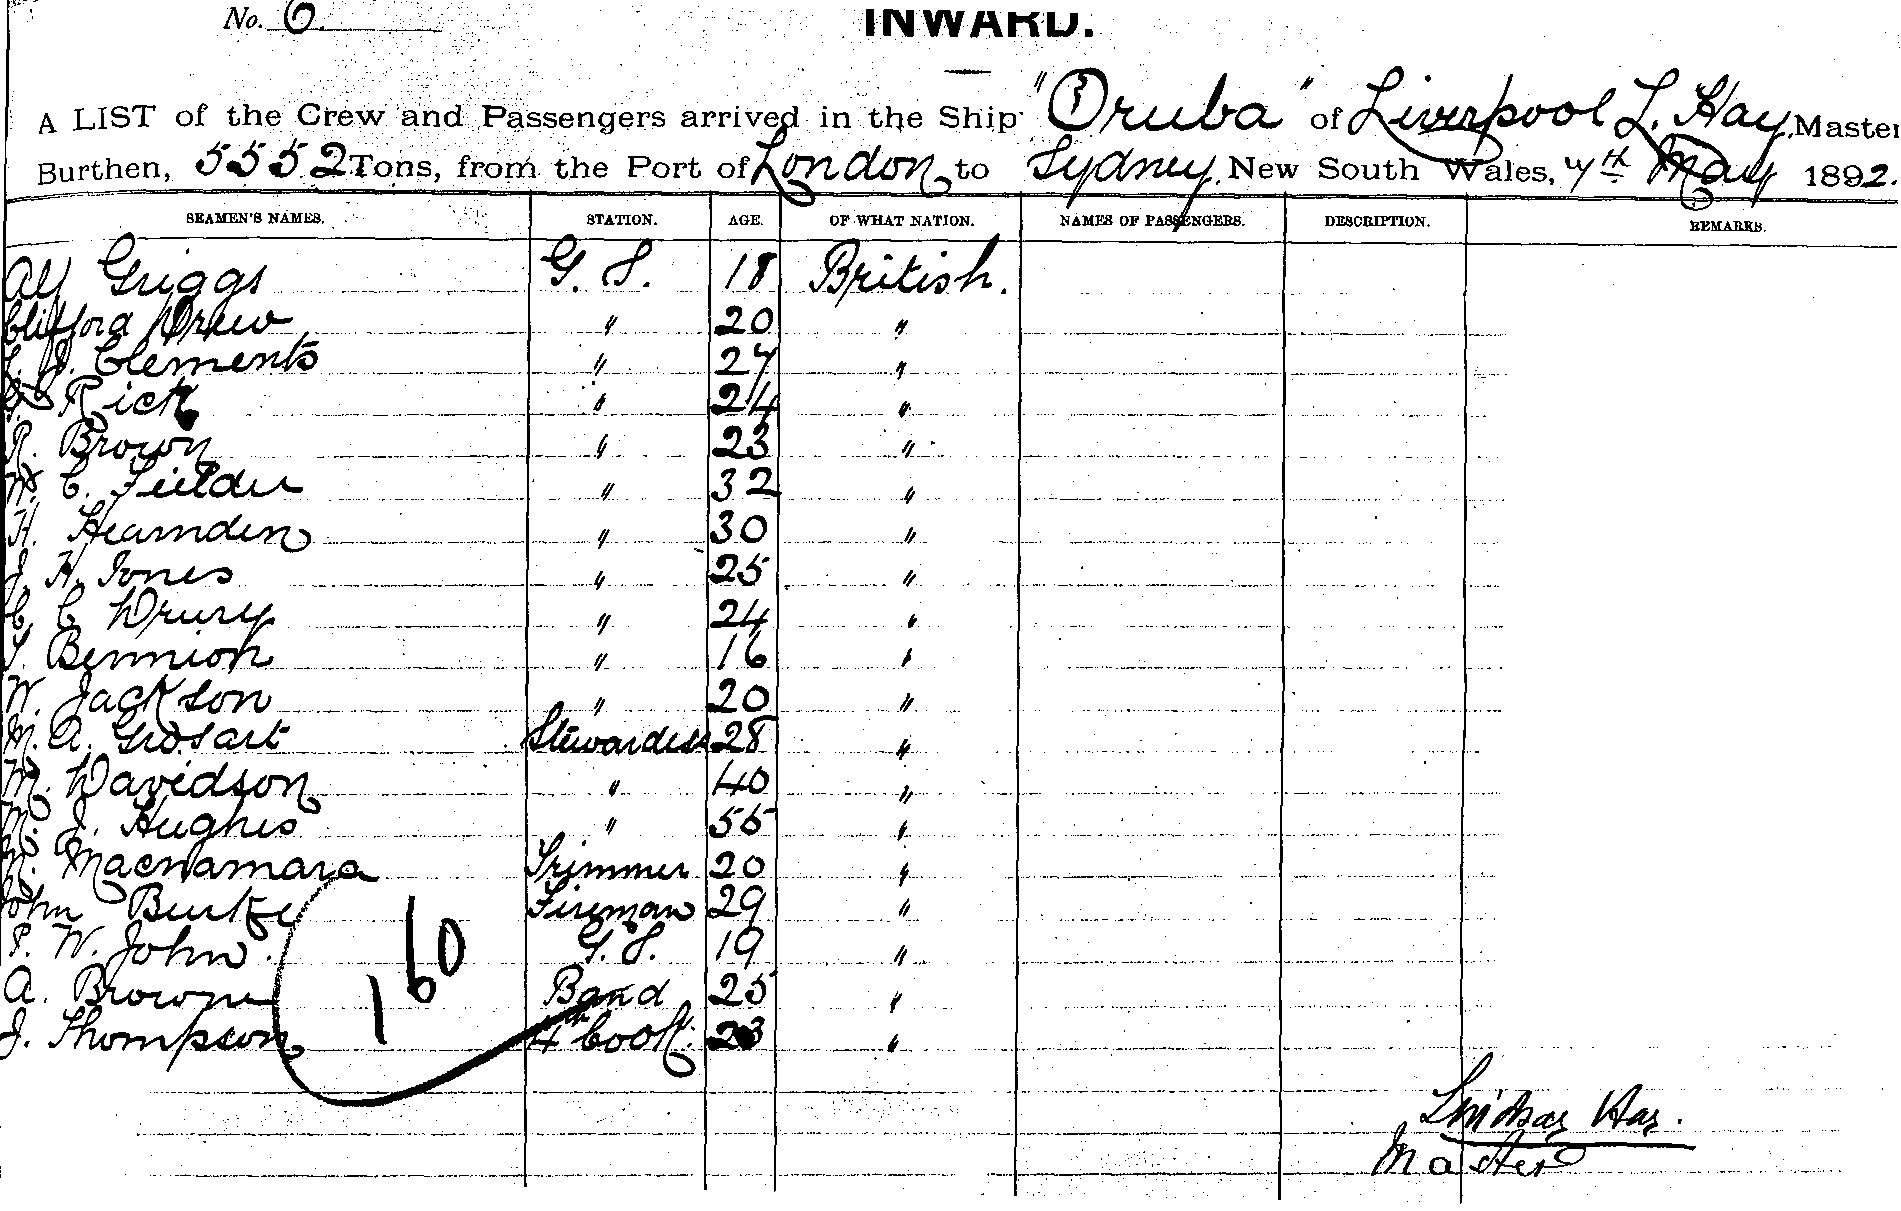 No. 6.
INWARD.
A LIST of the Crew and Passengers arrived in the Ship "Oruba" of Liverpool L. Hay, Master
Burthen, 5552 Tons, from the Port of London to Sydney, New South Wales, 7th May 1892.
SEAMEN'S NAMES. STATION. AGE. OF WHAT NATION. NAMES OF PASSENGERS. DESCRIPTION. REMARKS.
Alf Griggs G. S. 18 British.
Clifford Drew " 20 "
J. Clements " 27 "
Rick " 24 "
R. Brown " 23 "
W. C. Fielder " 32 "
H. Hearnden " 30 "
J. H. Jones " 25 "
C. C. Drury " 24 "
T. Bennion " 16 "
W. Jackson " 20 "
M. A. Grosart Stewardess 28 "
M. Davidson " 40 "
M. J. Hughes " 55 "
Macnamara Trimmer 20 "
John Burke Fireman 29 "
P. W. John G. S. 19 "
A. Browne Band 25 "
J. Thompson 4th Cook. 23 "
160
Lindsay Hay.
Master